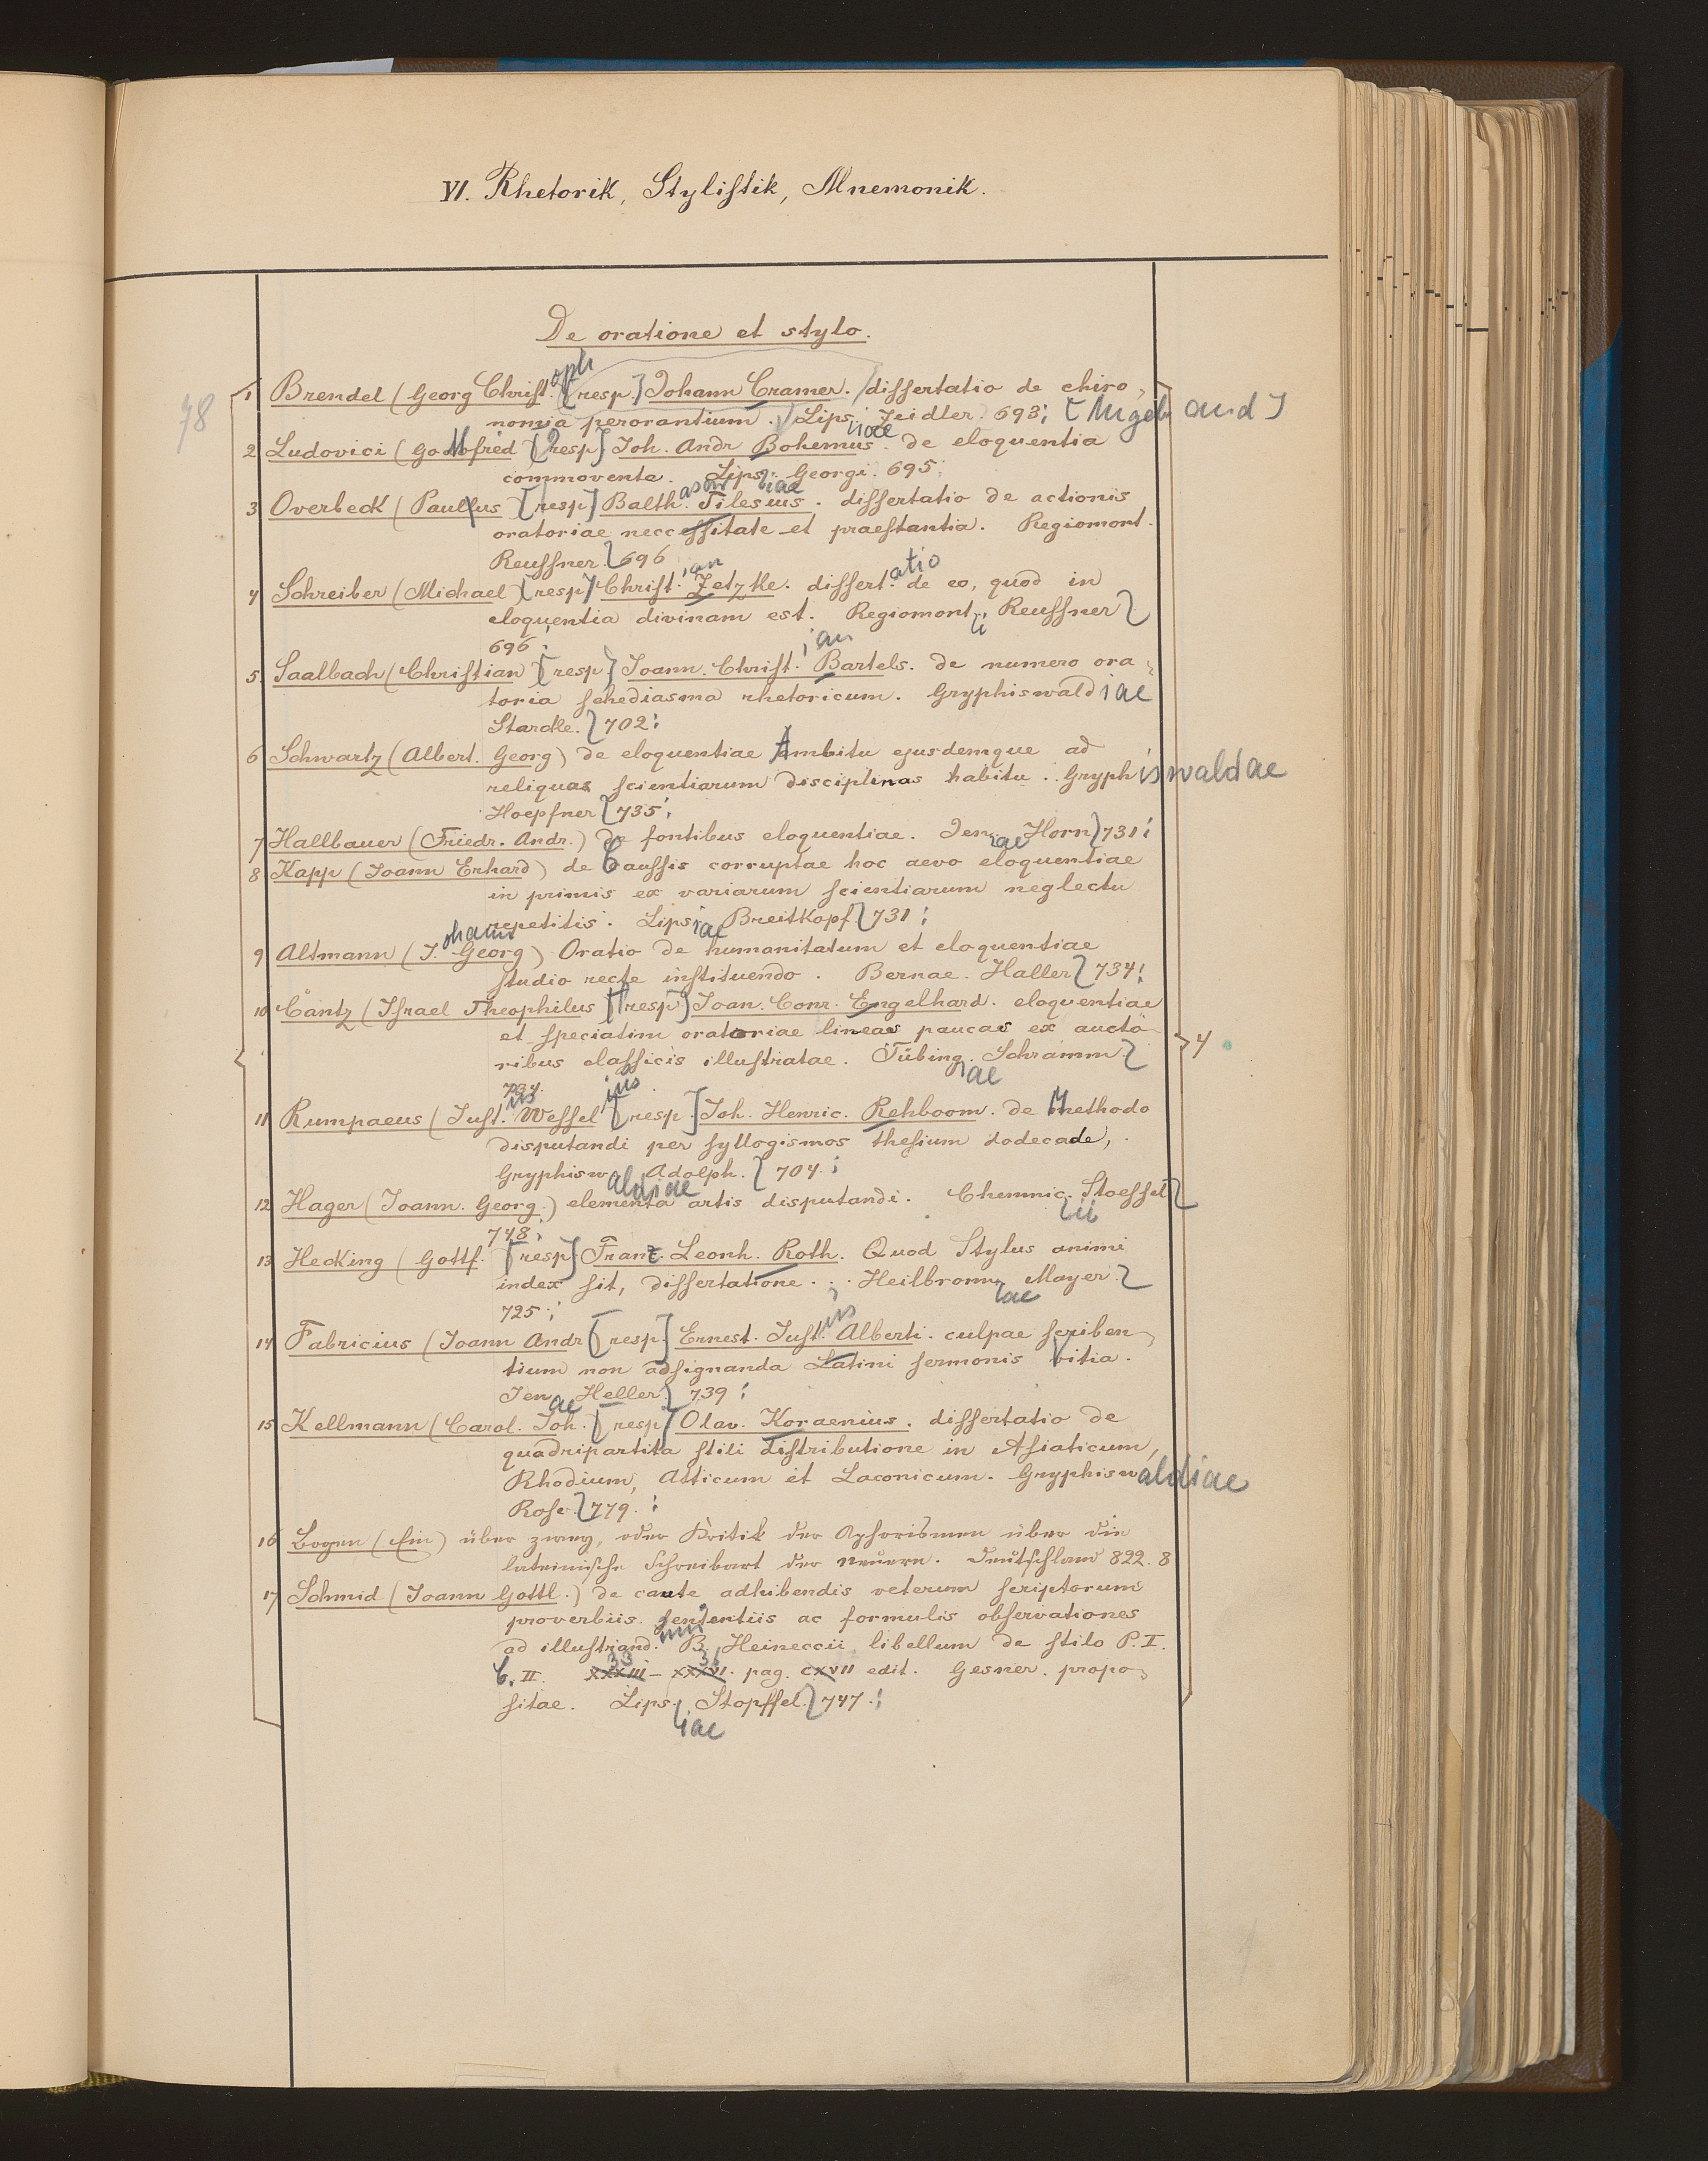 VI. Rhetorik, Stylistik, Mnemonik.
De oratione et stylo.
78
1 Brendel (Georg Christoph [resp.] Johann Cramer. dissertatio de chiro-
nomia perorantium. Lipsiae Zeidler 693; [Angebund]
2 Ludovici (Gottfried [resp] Joh. Andr Bohemus de eloquentia
commovente. Lipsiae Georgi. 695;
3 Overbeck (Paullus [resp] Balthasar Tilesius. dissertatio de actionis
oratoriae neccessitate et praestantia. Regiomont.
Reussner. 696
4 Schreiber (Michael [resp] Christian Zetzke. dissertatio de eo, quod in
eloquentia divinam est. Regiomonti Reussner
696;
5 Saalbach (Christian [resp] Joann. Christian Bartels. de numero ora-
toria schediasma rhetoricum. Gryphiswaldiae
Starcke. 702;
6 Schwartz (Albert. Georg) de eloquentiae Ambitu ejusdemque ad
reliquas scientiarum disciplinas habitu. Gryphiswaldae
Hoepfner 735;
7 Hallbauer (Friedr. Andr.) de fontibus eloquentiae. Jenae Horn 731;
8 Kapp (Joann Erhard) de Caussis corruptae hoc aevo eloquentiae
in primis ex variarum scientiarum neglectu
repetitis. Lipsiae Breitkopf 731;
9 Altmann (Johann Georg) Oratio de humanitatum et eloquentiae
studio recte instituendo. Bernae. Haller 734;
10 Cantz (Israel Theophilus [resp] Joan. Conr. Engelhard. eloquentiae
et speciatim oratoriae lineas paucas ex aucto-
ribus classicis illustratae. Tübingae Schramm
734.
11 Rumpaeus (Justus Wesselius [resp.] Joh. Henric. Rehboom. de Methodo
disputandi per syllogismos thesium dodecade,
Gryphiswaldiae Adolph. 704.;
12 Hager (Joann. Georg.) elementa artis disputandi. Chemnicii Stoessel
748;
13 Hecking (Gottf. [resp] Franz. Leonh. Roth. Quod Stylus animi
index sit, dissertatione. Heilbronnae Mayer
725;
14 Fabricius (Joann Andr [resp.] Ernest. Justus Alberti. culpae scriben-
tium non adsignanda Latini sermonis Vitia.
Jenae Heller. 739;
15 Kellmann (Carol. Joh. [resp] Olav. Koraenius. dissertatio de
quadripartita stili distributione in Asiaticum,
Rhodium, Atticum et Laconicum. Gryphiswaldiae
Rose. 779.;
16 Bogen (Ein) über zwey, oder Kritik der Aphorismen über die
lateinische Schreibart der Neuern. Deutschland 822. 8
17 Schmid (Joann Gottl.) de caute adhibendis veterum scriptorum
proverbiis sententiis ac formulis observationes
ad illustrand. B. Heineccii libellum de stilo P. I.
C. II. XXXIII 33 – XXXVI 36. pag. CXVII edit. Gesner. propo-
sitae. Lipsiae Stopffel. 747.;
4